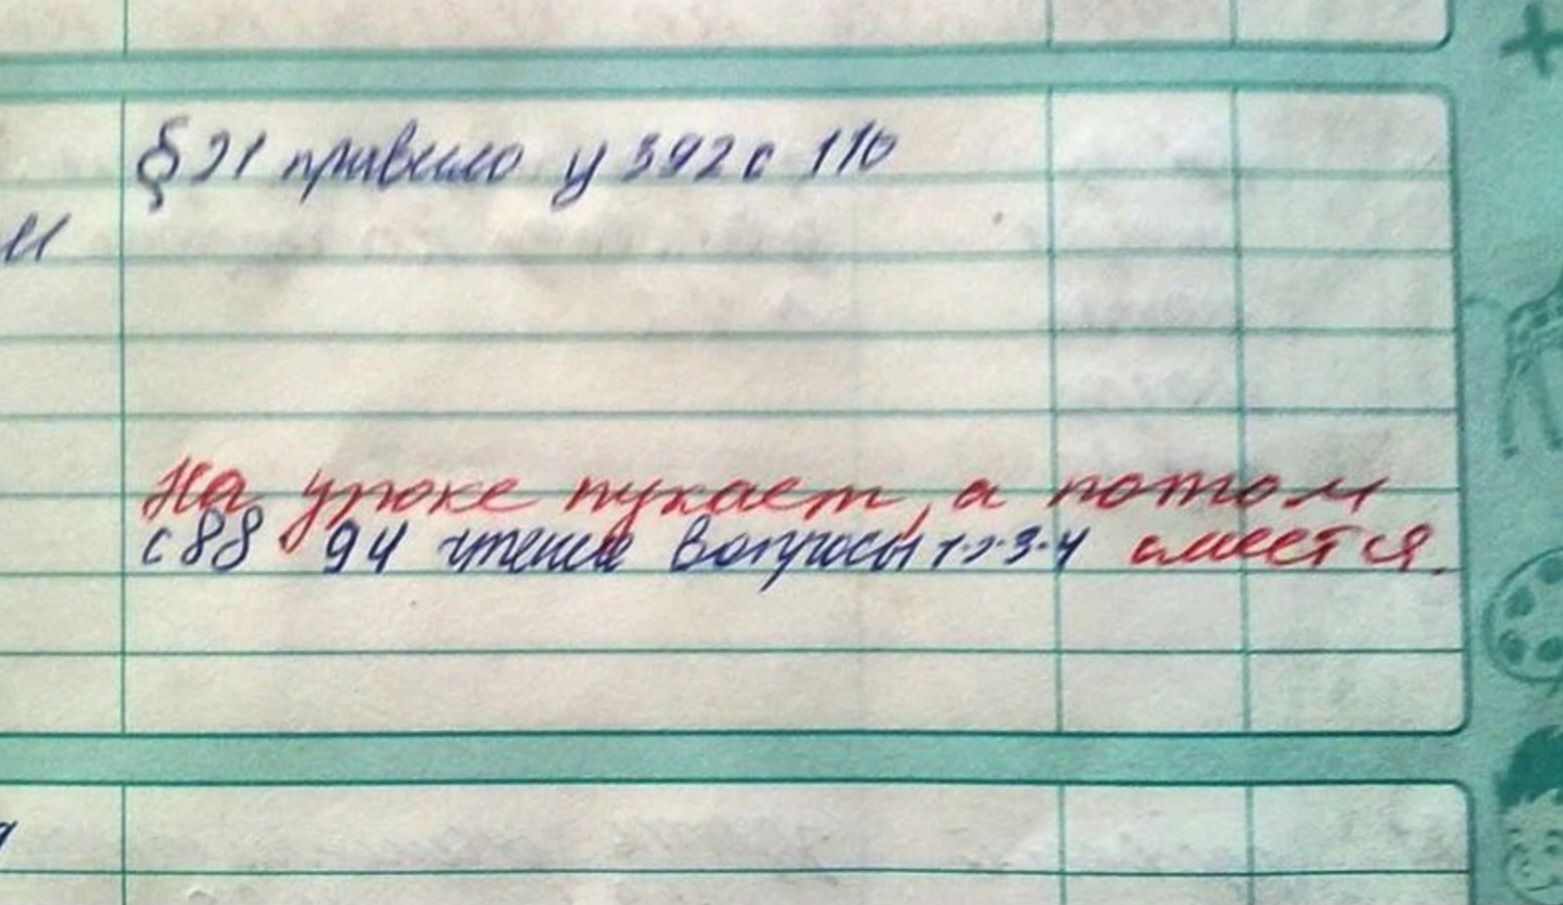 § 21 правило у 392 с 116
и
На уроке пукает, а потом
с 88 94 чтение вопросы 1-2-3-4 смеется.